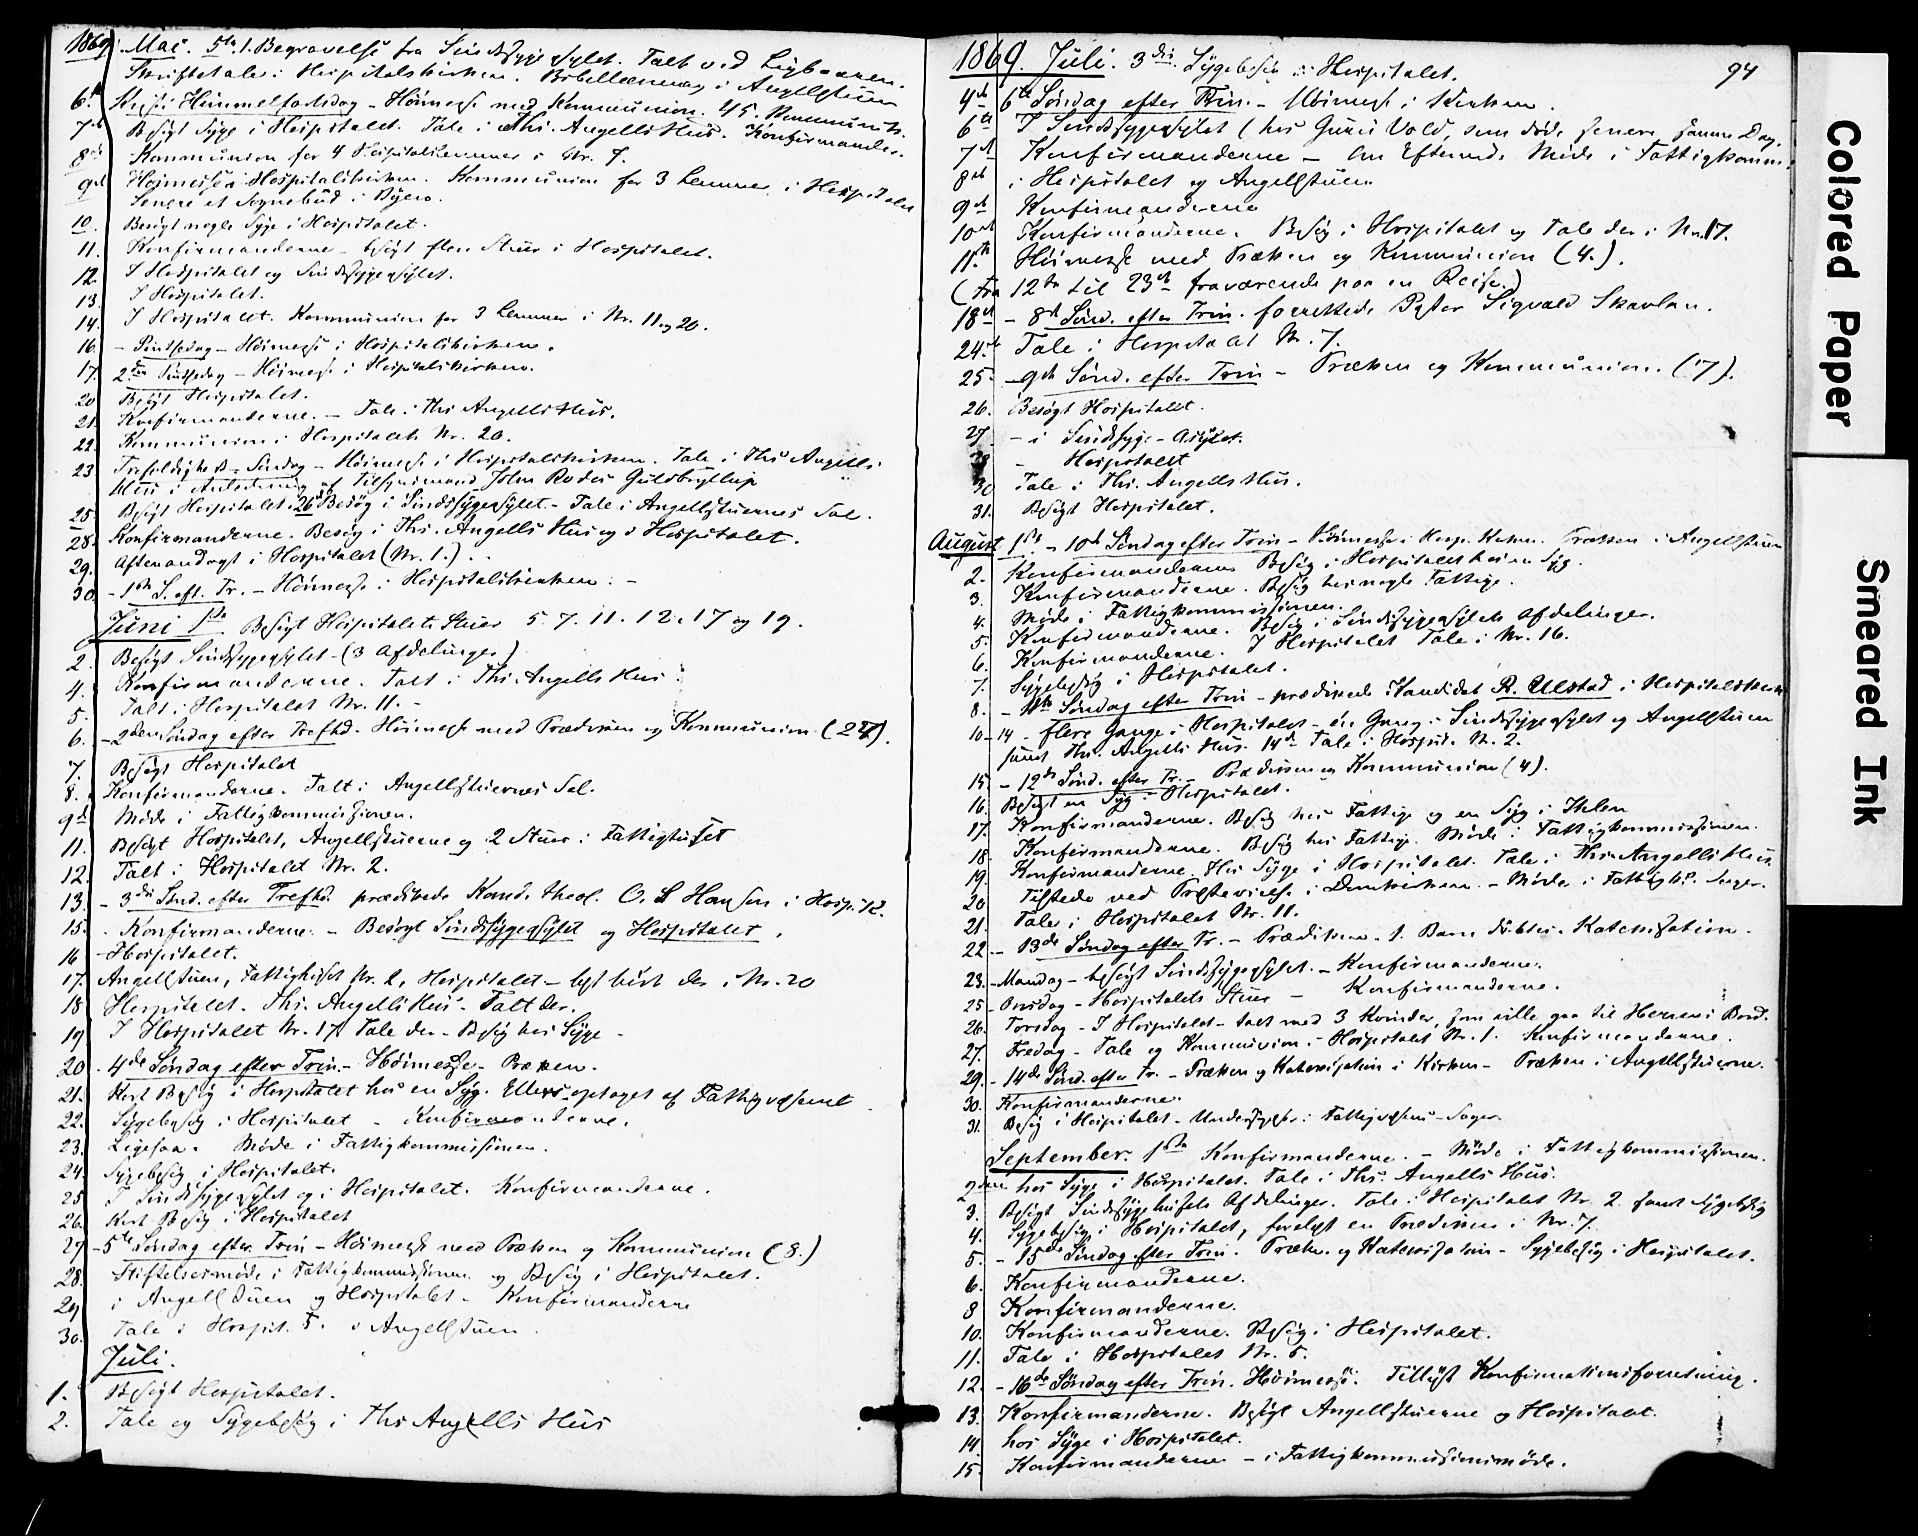 1869. Mai. 5te 1. Begravelse fra Sindssygeasylet. Talt ved Ligbaaren.
Skriftetale i Hospitalskirken. Bibellæsning i Angellstuen
6te Kristi Himmelfartsdag – Høimesse med Kommunion. 45.
7de Besøgt Syge i Hospitalet. Tale i Ths. Angells Hus. Konfirmander.
8de Kommunion for 4 Hospitalslemmer i Nr. 7.
9de Høimesse i Hospitalskirken. Kommunion for 3 Lemmer i Hospitalet
Senere et Sognebud i Byen.
10. Besøgt nogle Syge i Hospitalet.
11. Konfirmanderne – besøgt flere Stuer i Hospitalet.
12. I Hospitalet og Sindssygeasylet.
13. I Hospitalet.
14. I Hospitalet. Kommunion for 3 Lemmer i Nr. 11 og 20.
16. – Pintsedag – Høimesse i Hospitalskirken.
17. 2den Pintsedag – Høimesse i Hospitalskirken.
20 Besøgt Hospitalet.
21. Konfirmanderne. – Tale i Ths Angells Hus.
22. Kommunion i Hospitalets Nr. 20.
23 Trefoldigheds Søndag – Høimesse i Hospitalskirken. Tale i Ths Angells
Hus i Anledning af Tilsynsmand John Rodes Guldbryllup
25 Besøgt Hospitalet. 26 Besøg i Sindssygeasylet – Tale i Angellstuernes Sal.
28. Konfirmanderne. Besøg i Ths. Angells Hus og i Hospitalet.
29. Aftenandagt i Hospitalet (Nr. 1.).
30. – 1ste S. eft. Tr. – Høimesse i Hospitalskirken. –
Juni 1ste Besøgt Hospitalets Stuer 5. 7. 11. 12. 17 og 19.
2. Besøgt Sindssygeasylet – (3 Afdelinger)
4. Konfirmanderne. Talt i Ths. Angells Hus.
5. Talt i Hospitalet Nr. 11. –
6. – 2den Søndag efter Trefhd. Høimesse med Prædiken og Kommunion (27).
7. Besøgt Hospitalet
8. Konfirmanderne. Talt i Angellstuernes Sal.
9de Møde i Fattigkommissionen.
11. Besøgt Hospitalet, Angellstuerne og 2 Stuer i Fattighuset
12. Talt i Hospitalet Nr. 2.
13. – 3die Sønd. efter Trefhd. prædikede Kand. theol. O. S Hansen i Hosp. K.
15. – Konfirmanderne. – Besøgt Sindssygeasylet og Hospitalet.
16 – Hospitalet.
17. Angellstuen, Fattighuset Nr. 2, Hospitalet – der i Nr. 20
18 Hospitalet. Ths. Angells Hus. Talt der.
19 I Hospitalet Nr. 17. Tale der – Besøg hos Syge –
20. 4de Søndag efter Trin. – Høimesse – Præken.
21. Kort Besøg i Hospitalet hos en Syg. Ellers optaget af Fattigvæsenet
22. Sygebesøg i Hospitalet – Konfirmanderne.
23. Ligesaa. Møde i Fattigkommissionen.
24. Sygebesøg i Hospitalet.
25 I Sindssygeasylet og i Hospitalet. Konfirmanderne.
26. Kort Besøg i Hospitalet
27 – 5te Søndag efter Trin – Høimesse med Præken og Kommunion (8.)
28. Stiftelsesmøde i Fattigkommissionen og Besøg i Hospitalet.
29 i Angellstuen og Hospitalet – Konfirmanderne
30. Tale i Hospit. 5. i Angellstuen.
Juli.
1. Besøgt Hospitalet.
2. Tale og Sygebesøg i Ths Angells Hus
1869. Juli. 3die Sygebesøg i Hospitalet. 94
4de 6te Søndag efter Trin. – Høimesse i Kirken.
6te I Sindssygeasylet (hos Guru Vold, som døde senere samme Dag.
7de Konfirmanderne – om Eftermd. Møde i Fattigkomm.
8de i Hospitalet og Angellstuen
9de Konfirmanderne
10de Konfirmanderne. Besøg i Hospitalet og Tale der i Nr. 17.
11te Høimesse med Præken og Kommunion (4.).
(Fra 12te til 23de fraværende paa en Reise.)
18de – 8de Sønd. efter Trin. forrettede Pastor Sigvald Skavlan.
24de Tale i Hospitalet Nr. 7.
25. – 9de Sønd. efter Trin – Præken og Kommunion. (17).
26. Besøgt Hospitalet.
27 – i Sindssyge-Asylet.
– Hospitalet
30 Tale i Ths. Angells Hus.
31. Besøgt Hospitalet.
August 1ste – 10de Søndag efter Trin – Høimesse i Hosp. Kirken. Præken i Angellstuen
2. Konfirmanderne Besøg i Hospitalet hos en Syg.
3. Konfirmanderne. Besøg hos nogle Fattige.
4. Møde i Fattigkommissionen.
5. Konfirmanderne. Besøg i Sindssygeasylets Afdelinger.
6. Konfirmanderne. I Hospitalet Tale i Nr. 16.
7. Sygebesøg i Hospitalet.
8. – 11te Søndag efter Trin – prædikede Kandidat R. Ulstad i Hospitalskirken
10–14 – flere Gange i Hospitalet – én Gang i Sindssygeasylet og Angellstuen
samt Ths. Angells Hus. 14de Tale i Hospit. Nr. 2.
15. – 12te Sønd. efter Tr. – Prædiken og Kommunion (4).
16. Besøgt en Syg i Hospitalet.
17. Konfirmanderne. Besøg hos Fattige og en Syg i Ihlen
18. Konfirmanderne. Besøg hos Fattige. Møde i Fattigkommissionen.
19. Konfirmanderne. Hos Syge i Hospitalet. Tale i Ths. Angells Hus.
20 Tilstede ved Præstevielse i Domkirken. – Møde i Fattigk.
21. Tale i Hospitalet Nr. 11.
22. – 13de Søndag efter Tr. – Prædiken. 1. Barn døbtes. Katekisation.
23. – Mandag – besøgt Sindssygeasylet. – Konfirmanderne.
25 – Onsdag – Hospitalets Stuer – Konfirmanderne.
26. Torsdag – I Hospitalet – talt med 3 Kvinder, som ville gaa til Herrens Bord.
27. Fredag – Tale og Kommunion i Hospitalet Nr. 1. Konfirmanderne.
29. – 14de Sønd. efter Tr. – Præken og Katekisation i Kirken – Præken i Angellstuerne.
30. Konfirmanderne.
31. Besøg i Hospitalet – Undersøgelser i Fattigvæsens-Sager.
September. 1ste Konfirmanderne. – Møde i Fattigkommissionen.
2den hos Syge i Hospitalet. Tale i Ths. Angells Hus.
3. Besøgt Sindssygehusets Afdelinger. Tale i Hospitalet Nr. 2 samt Sygebesøg
4. Sygebesøg i Hospitalet, forelæst en Prædiken i Nr. 7.
5. – 15de Søndag efter Trin. Præken og Katekisation – Sygebesøg i Hospitalet.
6. Konfirmanderne.
8 Konfirmanderne.
10. Konfirmanderne. Besøg i Hospitalet.
11. Tale i Hospitalet Nr. 5.
12. – 16de Søndag efter Trin. Høimesse. Tillyst Konfirmationsforretning.
13. Konfirmanderne. Besøgt Angellstuerne og Hospitalet.
14 hos Syge i Hospitalet.
15. Konfirmanderne – i Fattigkommissionsmøde.
Colored Paper
Smeared Ink